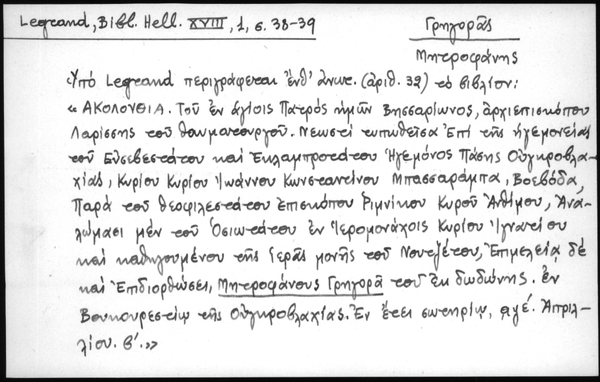 Legrand, Bibl. Hell. XVIII, 1, σ. 38-39
Γρηγορᾶς
Μητροφάνης
Ὑπό Legrand περιγράφεται ἔνθ' ἀνωτ. (ἀριθ. 32) τό βιβλίον:
« ΑΚΟΛΟΥΘΙΑ. Τοῦ ἐν ἁγίοις Πατρός ἡμῶν Βησσαρίωνος, ἀρχιεπισκόπου
Λαρίσσης τοῦ θαυματουργοῦ. Νεωστί τυπωθεῖσα Ἐπί τῆς ἡγεμονείας
τοῦ Εὐσεβεστάτου καί Ἐκλαμπροτάτου Ἡγεμόνος Πάσης Οὑγκροβλα-
χίας, Κυρίου Κυρίου Ἰωάννου Κωνσταντίνου Μπασσαράμπα, Βοεβόδα,
Παρά τοῦ θεοφιλεστάτου ἐπισκόπου Ριμνίκου Κυροῦ Ἀνθίμου, Ἀνα-
λώμασι μέν τοῦ Ὁσιωτάτου ἐν Ἱερομονάχοις Κυρίου Ἰγνατίου
καί καθηγουμένου τῆς ἱερᾶς μονῆς τοῦ Νουτζέτου, Ἐπιμελείᾳ δέ
καί Ἐπιδιορθώσει, Μητροφάνους Γρηγορᾶ τοῦ ἐκ δωδώνης. ἐν
Βουκουρεστίῳ τῆς Οὑγκροβλαχίας. Ἐν ἔτει σωτηρίῳ, αψέ. Ἀπριλ-
λίου. β΄.»